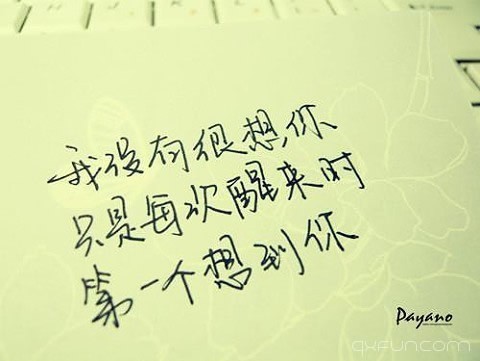 我没有很想你
只是每次醒来时
第一个想到你
Payano
qxfun.com